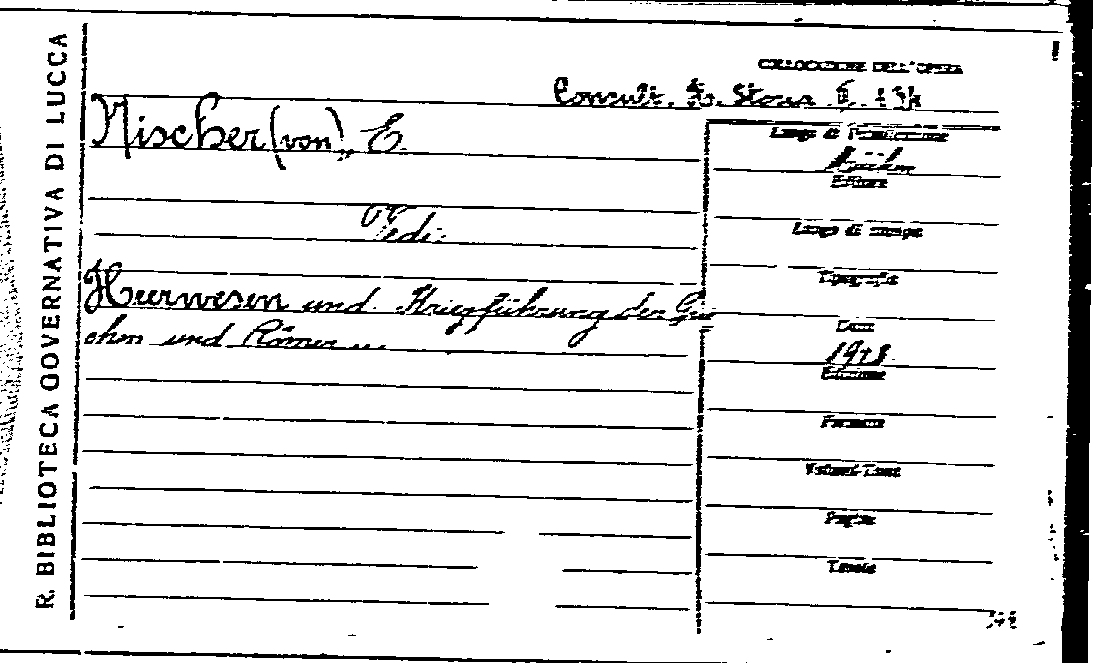 R. BIBLIOTECA GOVERNATIVA DI LUCCA
COLLOCAZIONE DELL'OPERA
Consult.
Nischer (von), E.
Vedi:
Heerwesen und Kriegführung der Grie
chen und Römer ...
Luogo di Pubblicazione
Editore
Luogo di stampa
Tipografia
Data
Edizione
Formato
Volumi-Tomi
Pagine
Tavole